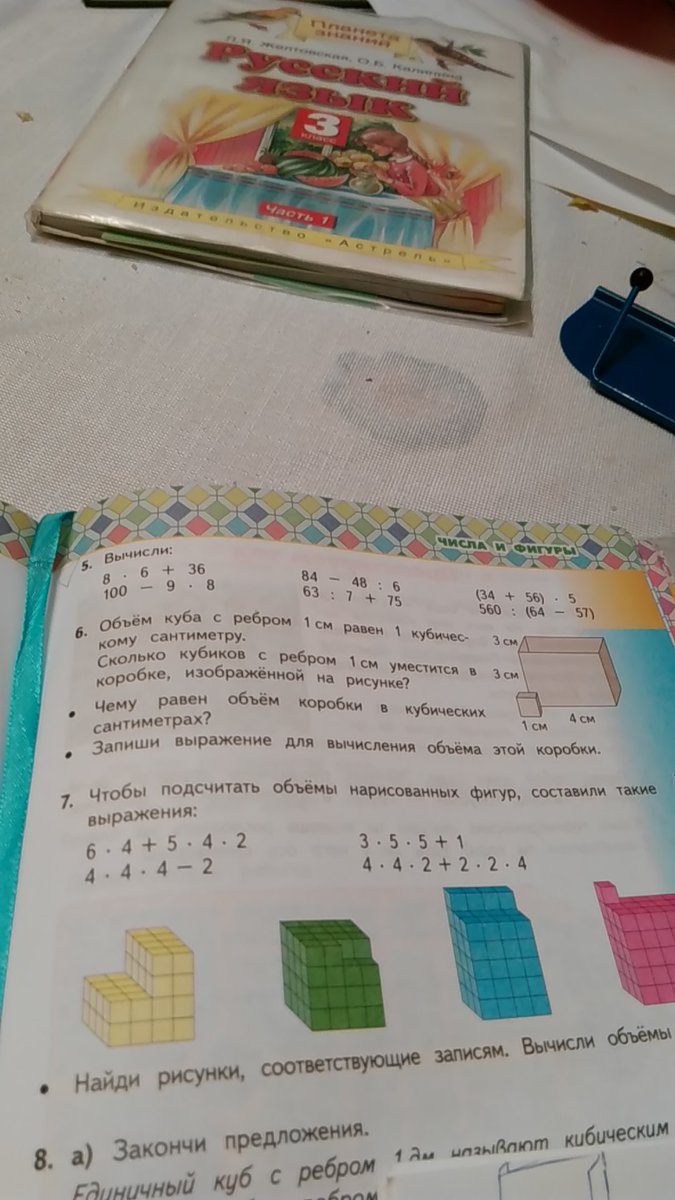 Планета
знаний
Л.Я. Желтовская, О.Б. Калинина
Русский
язык
3
класс
Часть 1
Издательство «Астрель»
ЧИСЛА И ФИГУРЫ
5. Вычисли:
8 · 6 + 36
84 − 48 : 6
(34 + 56) · 5
100 − 9 · 8
63 : 7 + 75
560 : (64 − 57)
6. Объём куба с ребром 1 см равен 1 кубичес-
кому сантиметру.
Сколько кубиков с ребром 1 см уместится в
коробке, изображённой на рисунке?
• Чему равен объём коробки в кубических
сантиметрах?
• Запиши выражение для вычисления объёма этой коробки.
3 см
3 см
1 см
4 см
7. Чтобы подсчитать объёмы нарисованных фигур, составили такие
выражения:
6 · 4 + 5 · 4 · 2
3 · 5 · 5 + 1
4 · 4 · 4 − 2
4 · 4 · 2 + 2 · 2 · 4
• Найди рисунки, соответствующие записям. Вычисли объёмы
8. а) Закончи предложения.
Единичный куб с ребром 1 дм называют кубическим
ребром